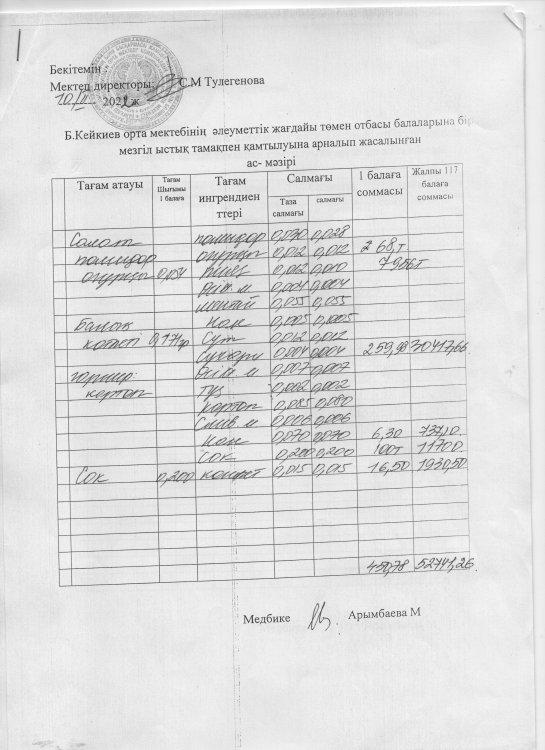 Бекітемін :
Мектеп директоры: С.М Тулегенова
10/ 202 ж
Б.Кейкиев орта мектебінің әлеуметтік жағдайы төмен отбасы балаларына бір
мезгіл ыстық тамақпен қамтылуына арналып жасалынған
ас- мәзірі
Тағам атауы Тағам Шығымы 1 балаға Тағам ингрендиен ттері Салмағы 1 балаға соммасы Жалпы 117 балаға соммасы
Таза салмағы салмағы
Салат помидор 0,030 0,028
помидор огурец 0,012 0,012 68,т
огурец 0,054 0,012 0,010 7956т
өсім. м 0,004 0,004
0,055 0,055
Балық нан 0,005 0,005
котлеті 0,171гр Сүт 0,012 0,012
Сухари 0,004 0,004 259,98 30417,66
гарнир өсім м 0,007 0,007
картоп тұз 0,002 0,002
картоп 0,085 0,080
Слив. м 0,006 0,006
нан 0,070 0,070 6,30 737,10
Сок 0,200 0,200 100т 11700
Сок 0,200 конфет 0,015 0,015 16,50 1930,50
450,78 52741,26
Медбике Арымбаева М